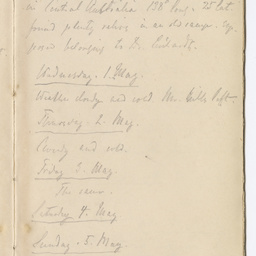 in Central Australia 138 long. 25 lat.
found plenty natives in an old camp. Sup
posed belonging to Dr.
Wednesday. 1. May.
Weather cloudy and cold Mr. Hills left.
Thursday. 2. May.
Cloudy and cold.
Friday 3. May
The same.
Saturday 4. May
Sunday. 5. May.